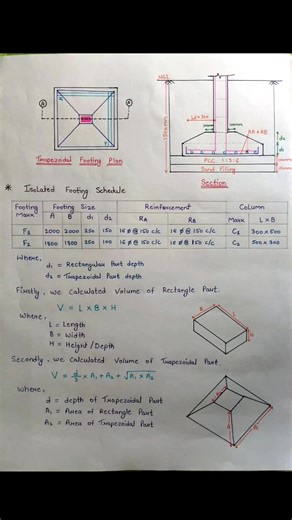 NGL
A
A
Y
Ld = 300
1500mm
RA & RB
d2
d1
PCC 1:3:6
Sand Filling
Trapezoidal Footing Plan
Section
* Isolated Footing Schedule
Footing Mark Footing Size Reinforcement Column
A B d1 d2 RA RB Mark L x B
F1 2000 2000 250 150 16 ø @ 150 c/c 16 ø @ 150 c/c C1 300 x 500
F2 1800 1800 250 100 16 ø @ 150 c/c 16 ø @ 150 c/c C2 500 x 300
Where,
d1 = Rectangular Part depth
d2 = Trapezoidal Part depth
Firstly, we Calculated Volume of Rectangle Part.
V = L x B x H
Where,
L = Length
B = Width
H = Height / Depth
Secondly, we Calculated Volume of Trapezoidal Part.
V = d/3 x A1 + A2 + √A1 x A2
Where,
d = depth of Trapezoidal Part
A1 = Area of Rectangle Part
A2 = Area of Trapezoidal Part
L
B